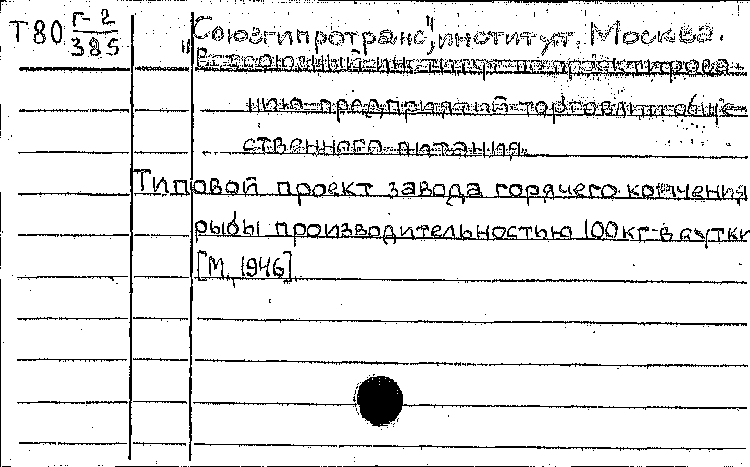 Т80 Г-2/385
"Союзгипротранс", институт. Москва.
Всесоюзный институт по проектирова-
нию предприятий торговли и обще-
ственного питания.
Типовой проект завода горячего копчения
рыбы производительностью 100 кг в сутки
[М., 1946]